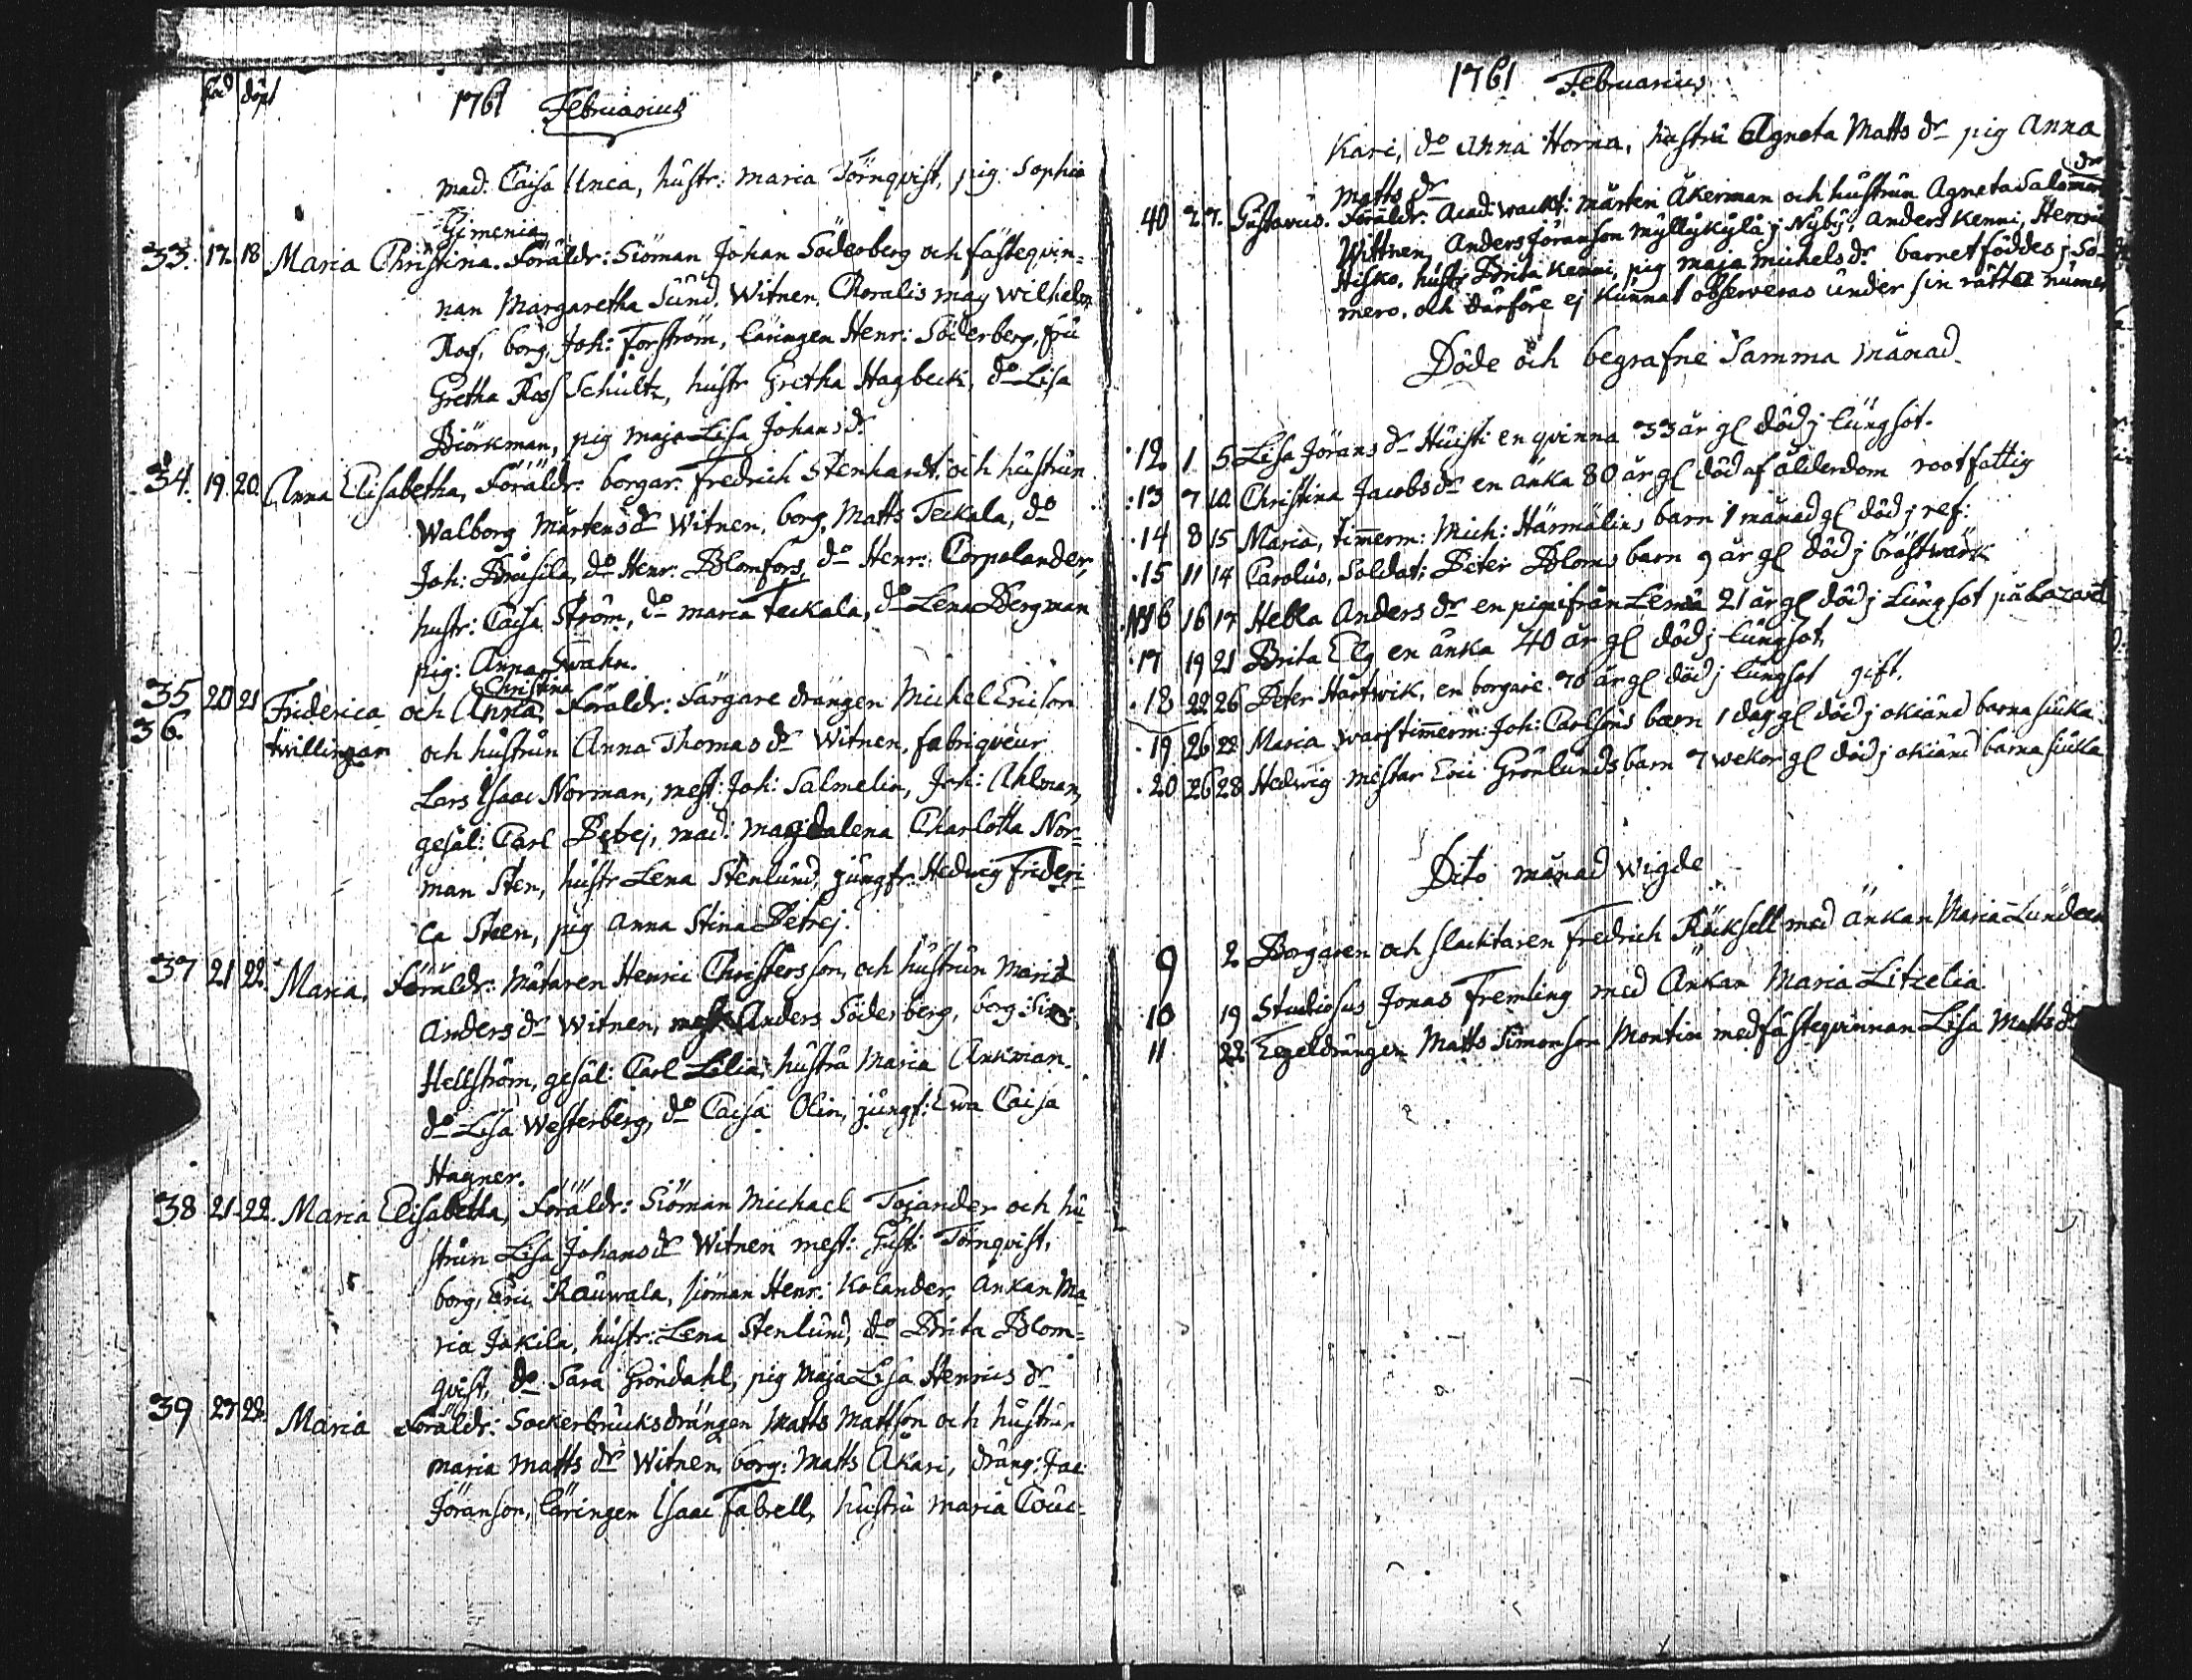 föd döpt
1761 Februarius
mad. Caisa Unca, hustr: maria Törnqvist, pig: Sophia
Gimenia
33. 17. 18 Maria Christina. Föräldr: Siöman Johan Söderberg och fästeqvin-
nan Margaretha Sund. Witnen, Choralis mag Wilhelm
Ross, borg. Joh: Forström, läringen Henr: Söderberg, fru
Gretha Ross Schultz, hustr Gretha Hagbeck, do Lisa
Biörkman, pig maja Lisa Johans dr
34. 19. 20. Anna Elisabetha, Föräldr. borgar. Fredrich Stenhardt och hustrun
Walborg Mårtens dr Witnen, borg. Matts Teckala, do
Joh: Brusila, do Henr. Blomfors, do Henr: Corpolander,
hustr: Caisa Ström, do maria Teckala, do Lena Bergman
pig: Anna Swahn.
Christina
35 20 21 Friderica och Anna, Föräldr: Särgare drängen Michel Ericson
36. twillingar och hustrun Anna Thomas dr Witnen, fabriqveur
Lars Isaac Norman, mest: Joh: Salmelin, Joh: Ahlman,
gesäl: Carl Petrej, mad: magdalena Charlotta Nor-
man Sten, hustr Lena Stenlund, jungfr: Hedwig Frideri-
ca Steen, pig Anna Stina Petrej.
37 21 22. Maria, Föräldr: Mätaren Henric Christersson och hustrun Maria
Anders dr Witnen, mest Anders Söderberg, borg: Sim:
Hellström, gesäl: Carl Lilia, hustru Maria Ankman.
do Lisa Westerberg, do Caisa Olin, jungf: Ewa Caisa
Hagner.
38 21. 22. Maria Elisabetha, Föräldr: Siöman Michael Tojander och hu-
strun Lisa Johans dr Witnen mest: Gust: Törnqvist,
borg, Eric Rauwala, siöman Henr: Kolander, änkan Ma-
ria Jakila, hustr: Lena Stenlund, do Brita Blom-
qvist, do Sara Gröndahl, pig Maja Lisa Henrics dr
39 27 22. Maria Föräldr: Sockerbruksdrängen Matts Mattson och hustrun
maria Matts dr Witnen, borg: Matts Akari, dräng: Jac
Jöranson, läringen Isaac Fabrell, hustru maria Couc-
1761 Februarius
Kari, do Anna Horna, hustru Agneta Matts dr pig Anna
Matts dr
40 27. Gustavus. Föräldr: Acad: wackt: Mårten Åkerman och hustrun Agneta Salomons dr
Wittnen, Anders Jöranson Myllykylä j Nyby, Anders Kenni, Henric
Hisko, hustr Brita Kenni, pig maja michels dr barnet föddes j So-
mero, och därföre ej kunnat observeras under sin rätta numer
Döde och begrafne Samma månad
12 1 5 Lisa Jörans dr Huisti en qvinna 33 år gl död j lungsot.
13 7 10. Christina Jacobs dr en änka 80 år gl död af ålderdom rootfattig
14 8 15 Maria, timerm: Mich: Härmälins barn 1 månad gl död j ref:
15 11 14 Carolus, Soldat: Peter Bloms barn 9 år gl död j bröstwärk
16 16 17 Hebla Anders dr en piga ifrån Lemo 21 år gl död j Lungsot på Lazaret
17 19 21 Brita Elg en änka 40 år gl död j lungsot
18 22 26 Peter Hartwik, en borgare 70 år gl död j lungsot gift.
19 26 28 Maria warftimerm: Joh: Carlsons barn 1 dag gl död j okiänd barnasiuka
20 26 28 Hedwig mästar Eric Grönlunds barn 7 wekor gl död j okiänd barnasiuka
Dito månad wigde
9 2 Borgaren och slacktaren Fredrich Röcksell med änkan Maria Lundeen
10 19 Studiosus Jonas Fremling med Änkan Maria Litzelia
11 22 Tegeldrängen Matts Simonson Montin med fästeqvinnan Lisa Matts dr